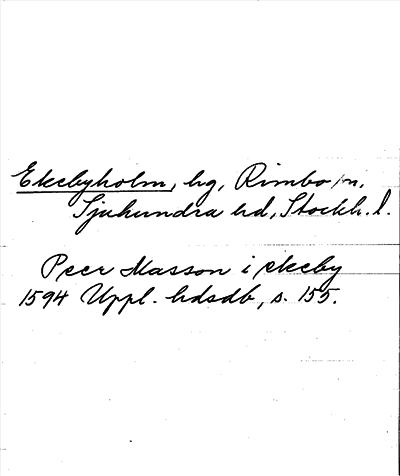 Ekebyholm, hg, Rimbo sn,
Sjuhundra hd, Stockh. l.
Peer Masson i ekeby
1594 Uppl. hdsdb, s. 155.